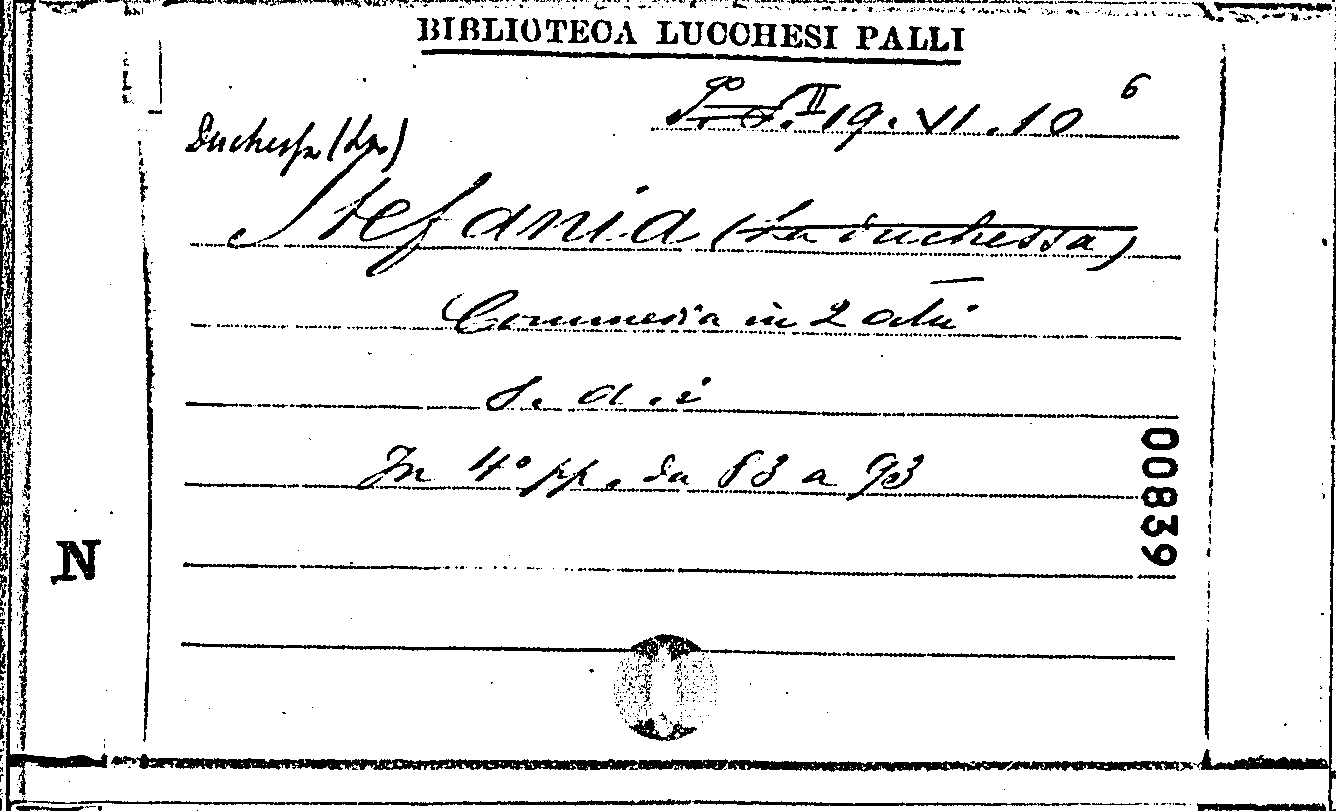 BIBLIOTECA LUCCHESI PALLI
II 19. VI. 10 6
Duchessa (La)
Stefania (La duchessa)
Commedia in 2 atti
s. d. i
In 4° pp. da 83 a 93
00839
N